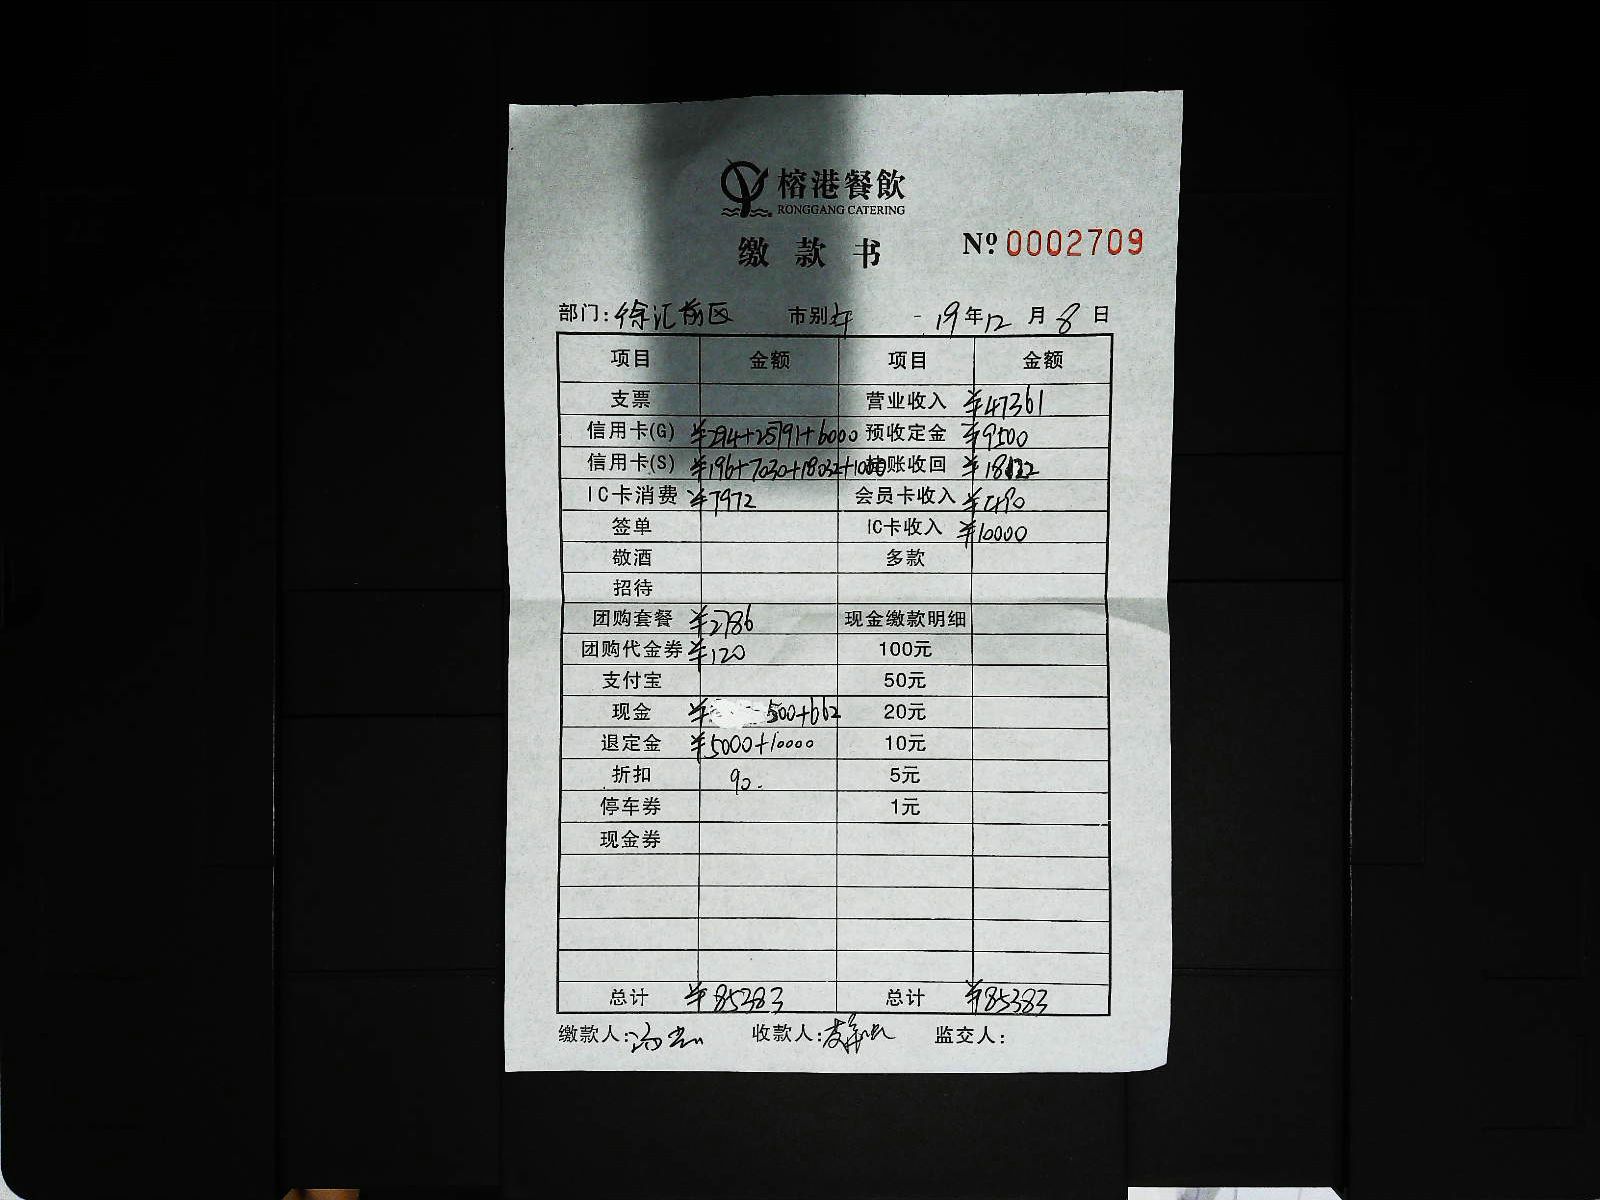 榕港餐飲
RONGGANG CATERING
缴款书 Nº 0002709
部门: 徐汇前区 市别 午 19年12月8日
项目 金额 项目 金额
支票 营业收入 ¥47361
信用卡(G) ¥294+25791+6000 预收定金 ¥9500
信用卡(S) ¥196+7030+18032+1000 账收回 ¥18122
IC卡消费 ¥7972 会员卡收入 ¥
签单 IC卡收入 ¥10000
敬酒 多款
招待
团购套餐 ¥2786 现金缴款明细
团购代金券 ¥120 100元
支付宝 50元
现金 ¥ 500+662 20元
退定金 ¥5000+10000 10元
折扣 90. 5元
停车券 1元
现金券
总计 ¥85383 总计 ¥85383
缴款人: 收款人: 监交人: